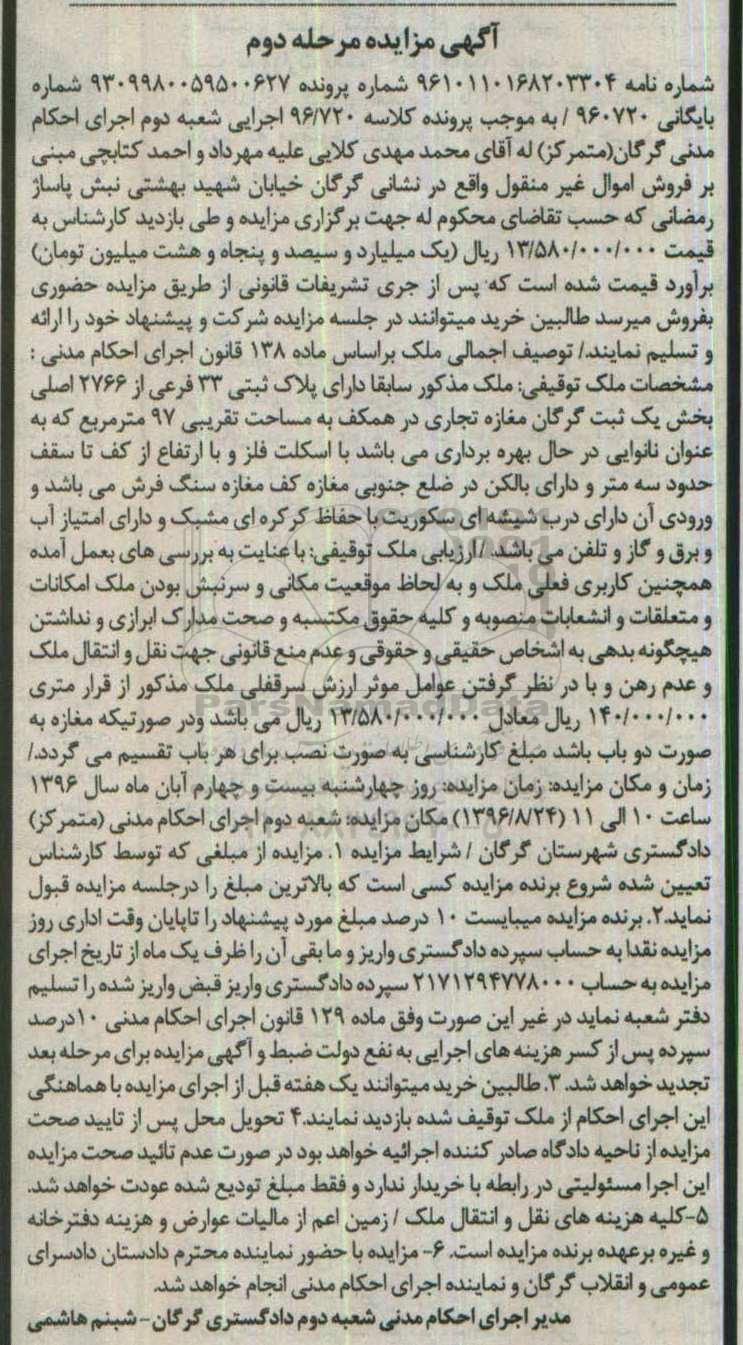 آگهی مزایده مرحله دوم
شماره نامه ۹۶۱۰۱۱۰۱۶۸۲۰۳۳۰۴ شماره پرونده ۹۳۰۹۹۸۰۰۵۹۵۰۰۶۲۷ شماره
بایگانی ۹۶۰۷۲۰ / به موجب پرونده کلاسه ۹۶/۷۲۰ اجرایی شعبه دوم اجرای احکام
مدنی گرگان(متمرکز) له آقای محمد مهدی کلایی علیه مهرداد و احمد کتابچی مبنی
بر فروش اموال غیر منقول واقع در نشانی گرگان خیابان شهید بهشتی نبش پاساژ
رمضانی که حسب تقاضای محکوم له جهت برگزاری مزایده و طی بازدید کارشناس به
قیمت ۱۳/۵۸۰/۰۰۰/۰۰۰ ریال (یک میلیارد و سیصد و پنجاه و هشت میلیون تومان)
برآورد قیمت شده است که پس از جری تشریفات قانونی از طریق مزایده حضوری
بفروش میرسد طالبین خرید میتوانند در جلسه مزایده شرکت و پیشنهاد خود را ارائه
و تسلیم نمایند./ توصیف اجمالی ملک براساس ماده ۱۳۸ قانون اجرای احکام مدنی :
مشخصات ملک توقیفی: ملک مذکور سابقا دارای پلاک ثبتی ۳۳ فرعی از ۲۷۶۶ اصلی
بخش یک ثبت گرگان مغازه تجاری در همکف به مساحت تقریبی ۹۷ مترمربع که به
عنوان نانوایی در حال بهره برداری می باشد با اسکلت فلز و با ارتفاع از کف تا سقف
حدود سه متر و دارای بالکن در ضلع جنوبی مغازه کف مغازه سنگ فرش می باشد و
ورودی آن دارای درب شیشه ای سکوریت با حفاظ کرکره ای مشبک و دارای امتیاز آب
و برق و گاز و تلفن می باشد. /ارزیابی ملک توقیفی: با عنایت به بررسی های بعمل آمده
همچنین کاربری فعلی ملک و به لحاظ موقعیت مکانی و سرنبش بودن ملک امکانات
و متعلقات و انشعابات منصوبه و کلیه حقوق مکتسبه و صحت مدارک ابرازی و نداشتن
هیچگونه بدهی به اشخاص حقیقی و حقوقی و عدم منع قانونی جهت نقل و انتقال ملک
و عدم رهن و با در نظر گرفتن عوامل موثر ارزش سرقفلی ملک مذکور از قرار متری
۱۴۰/۰۰۰/۰۰۰ ریال معادل ۱۳/۵۸۰/۰۰۰/۰۰۰ ریال می باشد ودر صورتیکه مغازه به
صورت دو باب باشد مبلغ کارشناسی به صورت نصب برای هر باب تقسیم می گردد./
زمان و مکان مزایده: زمان مزایده: روز چهارشنبه بیست و چهارم آبان ماه سال ۱۳۹۶
ساعت ۱۰ الی ۱۱ (۱۳۹۶/۸/۲۴) مکان مزایده: شعبه دوم اجرای احکام مدنی (متمرکز)
دادگستری شهرستان گرگان / شرایط مزایده ۱. مزایده از مبلغی که توسط کارشناس
تعیین شده شروع برنده مزایده کسی است که بالاترین مبلغ را درجلسه مزایده قبول
نماید.۲. برنده مزایده میبایست ۱۰ درصد مبلغ مورد پیشنهاد را تاپایان وقت اداری روز
مزایده نقدا به حساب سپرده دادگستری واریز و ما بقی آن را ظرف یک ماه از تاریخ اجرای
مزایده به حساب ۲۱۷۱۲۹۴۷۷۸۰۰۰ سپرده دادگستری واریز قبض واریز شده را تسلیم
دفتر شعبه نماید در غیر این صورت وفق ماده ۱۲۹ قانون اجرای احکام مدنی ۱۰درصد
سپرده پس از کسر هزینه های اجرایی به نفع دولت ضبط و آگهی مزایده برای مرحله بعد
تجدید خواهد شد. ۳. طالبین خرید میتوانند یک هفته قبل از اجرای مزایده با هماهنگی
این اجرای احکام از ملک توقیف شده بازدید نمایند.۴ تحویل محل پس از تایید صحت
مزایده از ناحیه دادگاه صادر کننده اجرائیه خواهد بود در صورت عدم تائید صحت مزایده
این اجرا مسئولیتی در رابطه با خریدار ندارد و فقط مبلغ تودیع شده عودت خواهد شد.
۵-کلیه هزینه های نقل و انتقال ملک / زمین اعم از مالیات عوارض و هزینه دفترخانه
و غیره برعهده برنده مزایده است. ۶- مزایده با حضور نماینده محترم دادستان دادسرای
عمومی و انقلاب گرگان و نماینده اجرای احکام مدنی انجام خواهد شد.
مدیر اجرای احکام مدنی شعبه دوم دادگستری گرگان- شبنم هاشمی
ParsNamadData